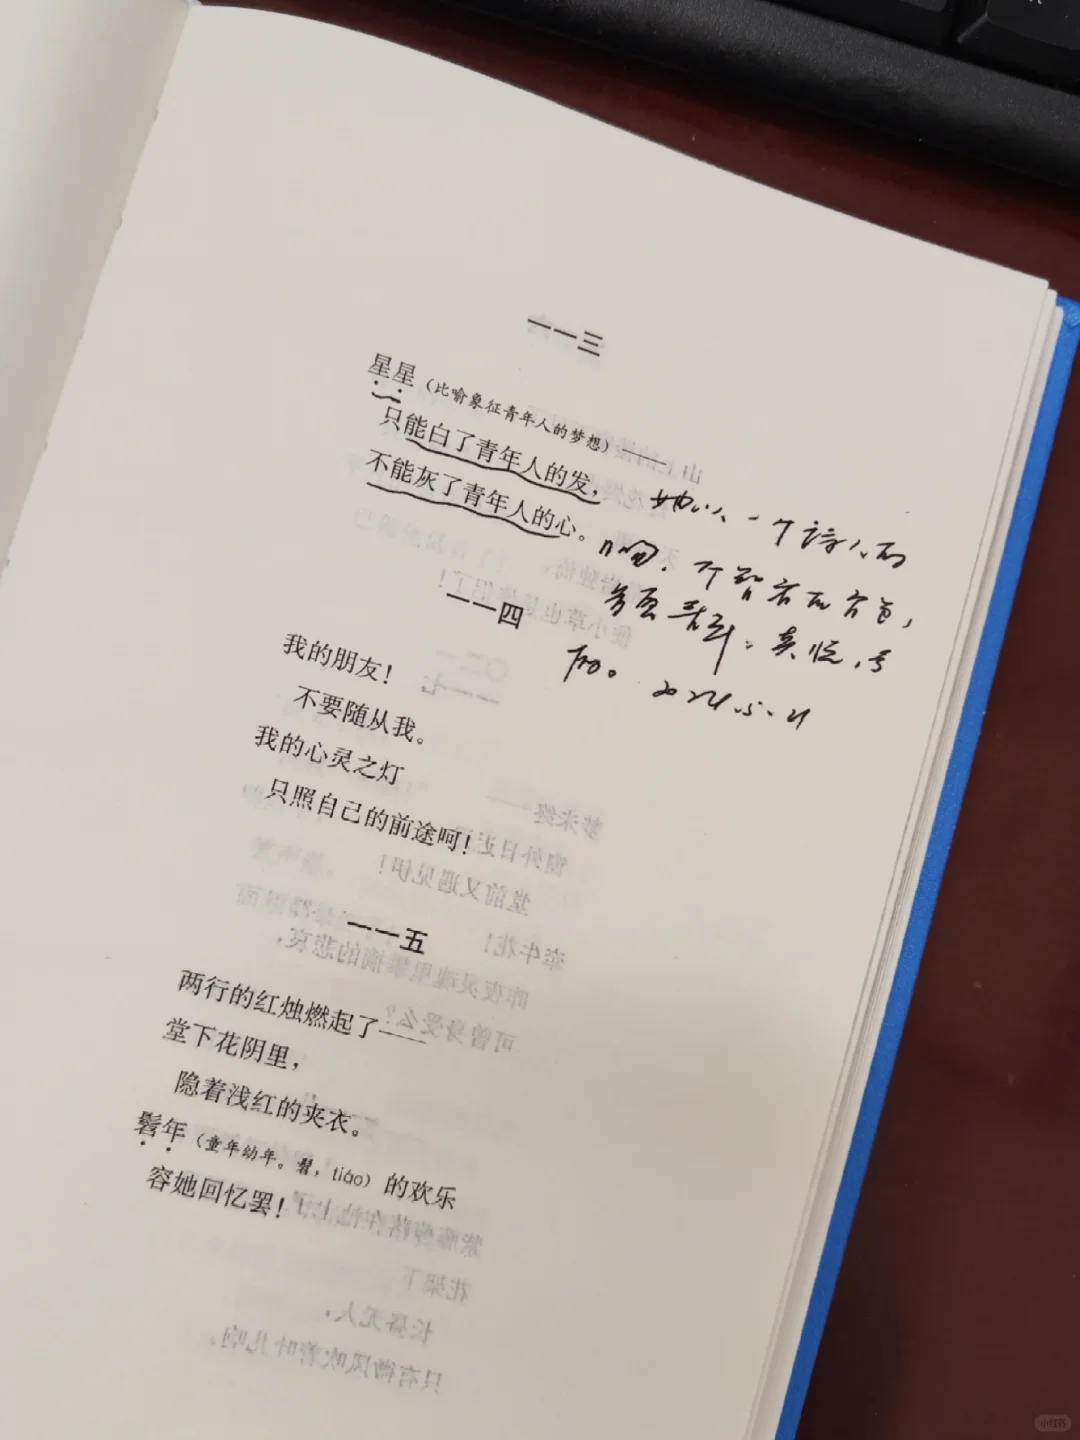 一一三
星星（比喻象征青年人的梦想）——
只能白了青年人的发，
不能灰了青年人的心。
她以一个诗人的
2024.5.21
一一四
我的朋友！
不要随从我。
我的心灵之灯
只照自己的前途呵！
一一五
两行的红烛燃起了——
堂下花阴里，
隐着浅红的夹衣。
髫年（童年幼年。髫，tiáo）的欢乐
容她回忆罢！